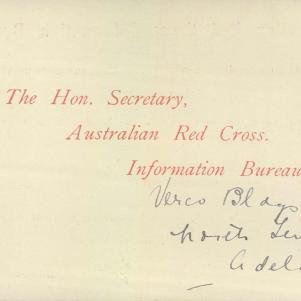 The Hon. Secretary,
Australian Red Cross.
Information Bureau
Verco Bldgs
North Ter
Adela